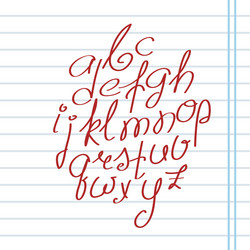 abc
defgh
ijklmnop
qrstuv
qwxyz